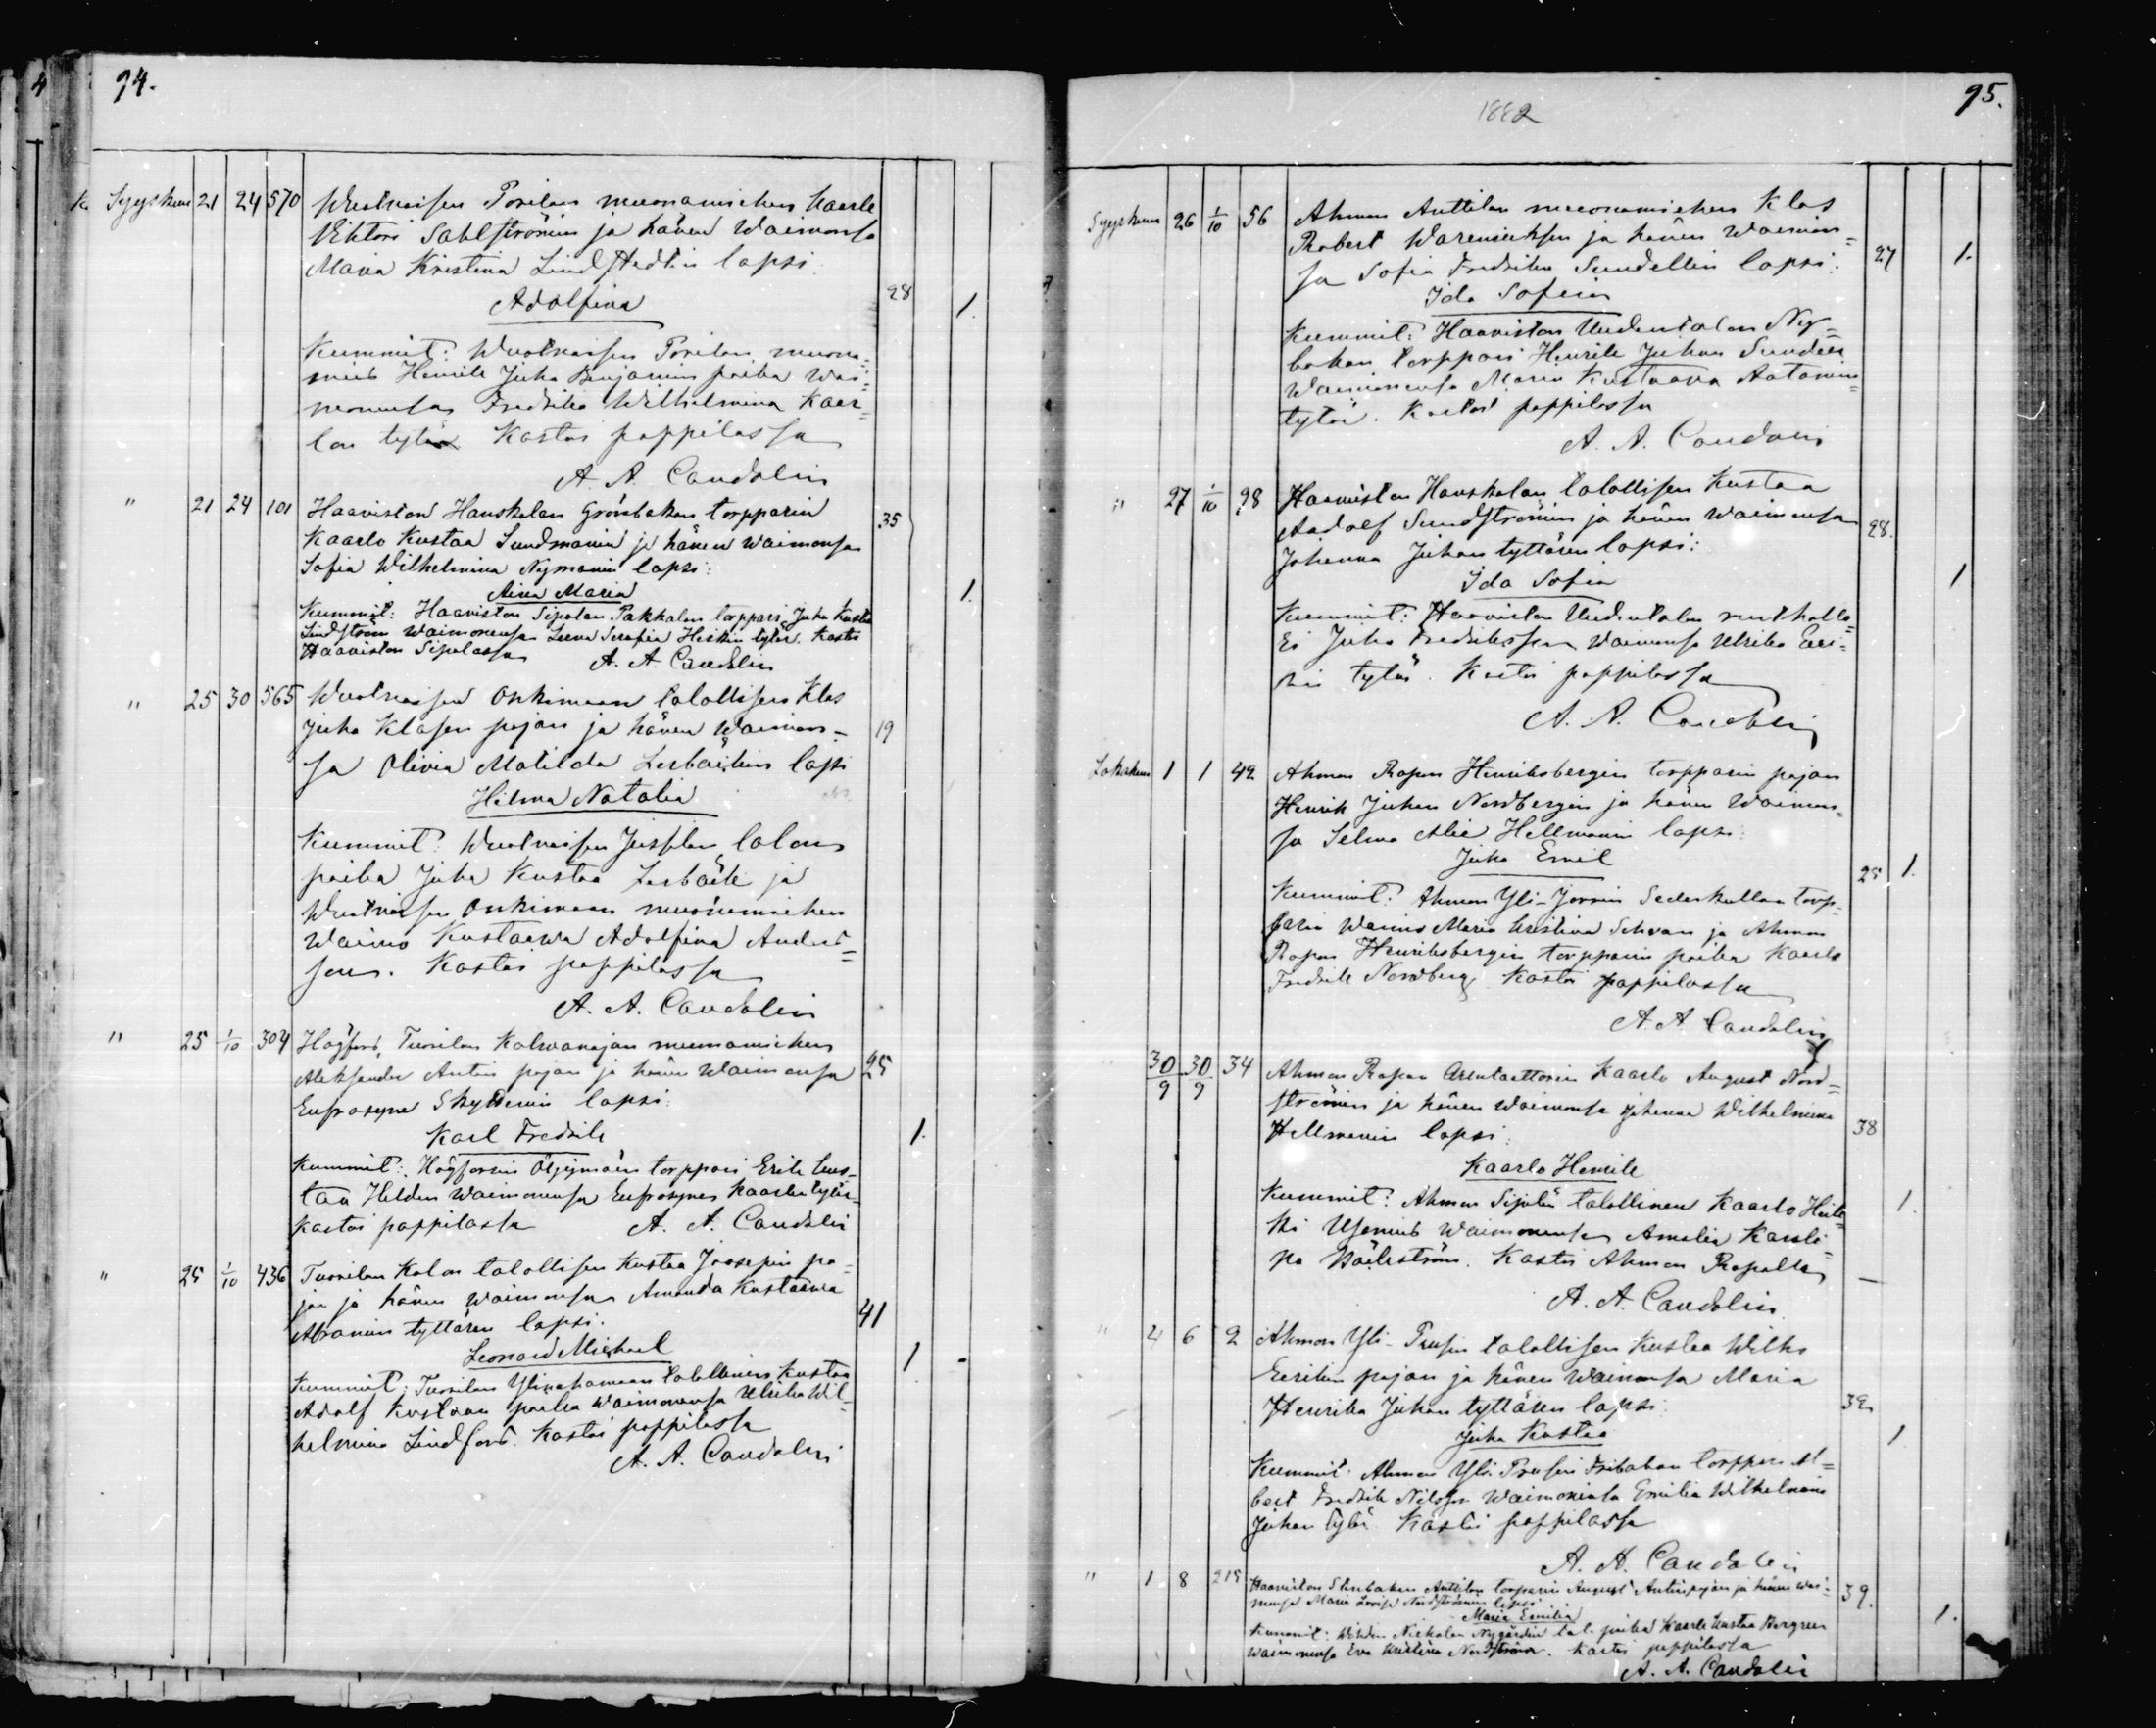 94.
Syyskuu 21 24 570 Wuotnaisen Porilan muonamiehen Kaarle
Viktori Sahlströmin ja hänen Waimonsa
Maria Kristina Lindstedtin lapsi
Adolfina
28 1.
Kummit: Wuotnaisen Porilan muona-
mies Henrik Juha Benjamin poika Wai-
monensa Fredrika Wilhelmina Kaar-
lon tytär Kastoi pappilassa
A. A. Candolin
" 21 24 101 Haaviston Hauskalan Grönbakan torpparin
35
Kaarlo Kustaa Sundmanin ja hänen waimonsa
Sofia Wilhelmina Nymanin lapsi:
Aina Maria
1.
Kummit: Haaviston Sipolan Pakkalan torppari Juha Kustaa
Lindström Waimonensa Leena Serafia Heikin tytär. Kastoi
Haaviston Sipolassa A. A. Candolin
" 25 30 565 Wuotnaisen Onkimaan talollisen Klas
Juho Klasen pojan ja hänen Waimon-
19
sa Olivia Matilda Lerbäckin lapsi
Hilma Natalia
Kummit: Wuotnaisen talon
poika Juha Kustaa Lerbäck ja
Wuotnaisen Onkimaan muonamiehen
Waimo Kustaawa Adolfina Anders-
son. Kastoi pappilassa
A. A. Candolin
" 25 1/10 304 Högfors, Tuorilan Kalwanojan muonamiehen
Aleksander Antin pojan ja hänen Waimonsa
25
Eufrosyne lapsi:
Karl Fredrik
1.
Kummit: Högforsin Öljymäen torppari Erik Kus-
taa Helden Waimonensa Eufrosyne Kaarlen tytär
Kastoi pappilassa A. A. Candolin
" 25 1/10 436 Tuorilan Kolan talollisen Kustaa Joosepin po-
jan ja hänen Waimonsa Amanda Kustaawa
Abramin tyttären lapsi.
41
Leonard Michael
1.
Kummit: Tuorilan talollinen Kustaa
Adolf Kustaan poika Waimonensa Ulrika Wil-
helmina Lindfors. Kastoi pappilassa
A. A. Candolin
1882
95.
Syyskuu 26 1/10 56 Ahmon Anttilan muonamiehen Klas
Robert ja hänen Waimon-
sa Sofia Fredrika Sundellin lapsi:
27 1.
Ida Sofia
Kummit: Haaviston Uudentalon Ny-
bakan torppari Henrik Juhan
Waimonensa Maria Kustaava
tytär. Kastoi pappilassa
A. A. Candolin
" 27 1/10 98 Haaviston Hauskalan talollisen Kustaa
Aadolf Sundströmin ja hänen Waimonsa
28.
Johanna Juhan tyttären lapsi:
Ida Sofia
1
Kummit: Haaviston Uudentalon
Juha Fredriksson Waimonsa Ulrika Eeri-
kin tytär. Kastoi pappilassa
A. A. Candolin
Lokakuu 1 1 42 Ahmon Ropon Henriksbergin torpparin pojan
Henrik Juhan Nordbergin ja hänen Waimon-
sa Selma Alie Hellmanin lapsi:
Juho Emil
25 1.
Kummit: Ahmon Yli-Jorrin Sederkullan torp-
parin Waimo Maria Kristina Schvan ja Ahmon
Ropon Henriksbergin torpparin poika Kaarlo
Fredrik Nordberg. Kastoi pappilassa
A. A. Candolin
" 30/9 30/9 34 Ahmon Ropon Arentaattorin Kaarlo August Nord-
strömin ja hänen Waimonsa Johanna Wilhelmina
Hellmanin lapsi:
38
Kaarlo Henrik
Kummit: Ahmon Sipilän talollinen Kaarlo Heik-
1.
ki Waimonensa Amalia Karoli-
na Bäckström. Kastoi Ahmon Ropolla
A. A. Candolin
" 4 6 2 Ahmon Yli-Prusin talollisen Kustaa Wilho
Eerikin pojan ja hänen Waimonsa Maria
Henrika Juhan tyttären lapsi
39
Juha Kustaa
1
Kummit: Ahmon Yli-Prusin torppari Al-
bert Fredrik Nilsson Waimonensa Emilia Wilhelmina
Juhan tytär. Kastoi pappilassa
A. A. Candolin
" 1 8 215 Haaviston Stenbakan Anttilan torparin August Antinpojan ja hänen wai-
monsa Maria Lovisa Nordströmin lapsi
39.
Maria Emilia
1.
Kummit: Niekalan tal. poika Kaarle Kustaa Bergren
Waimonensa Eva Kristina Nordström. Kastoi pappilassa
A. A. Candolin